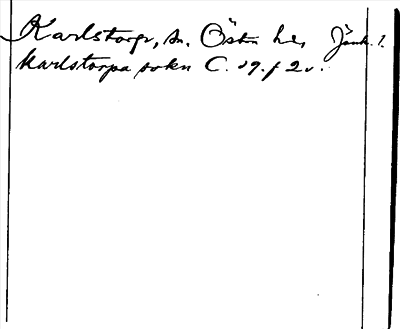 Karlstorp, sn. Östra hd, Jönk. l.
Karlstorpa sokn C. 19. f 2v.